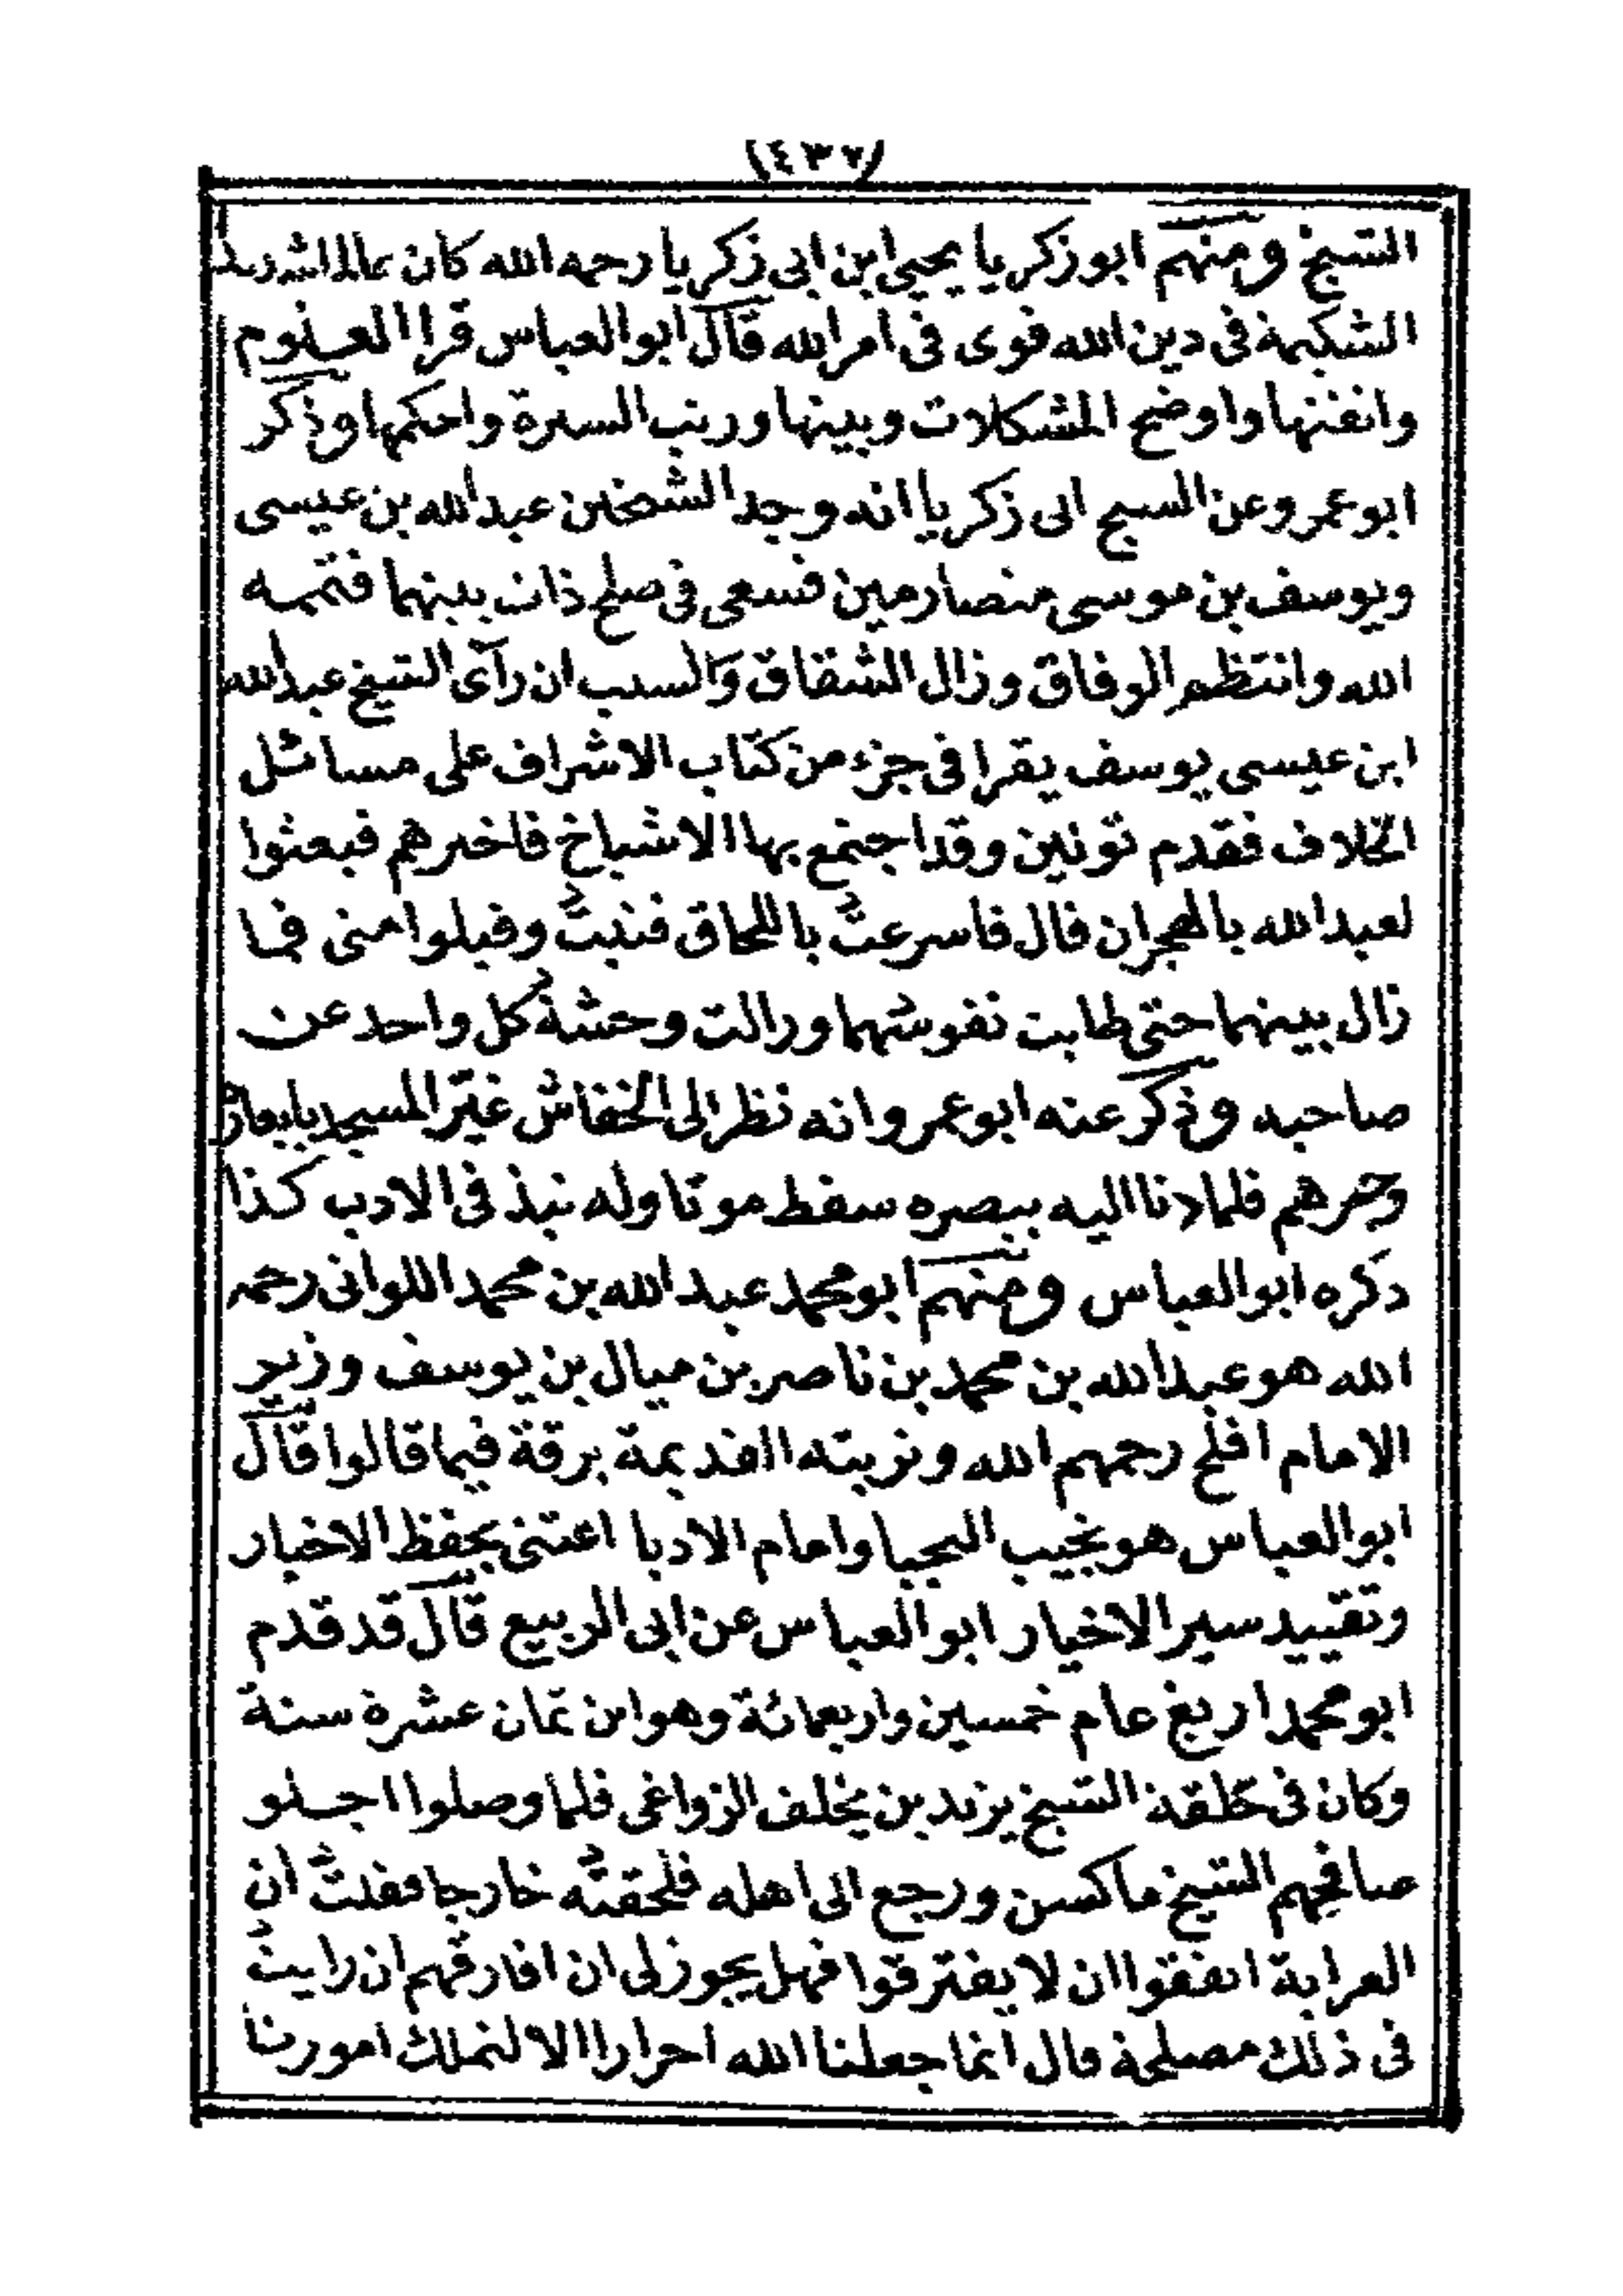 (٤٣٧)
الشيخ ومنهم ابو زكريا يحيى ابن ابى زكريا رحمه الله كان عالما شديد
الشكيمة فى دين الله قوى فى امر الله قال ابو العباس قرا العلوم
واتقنها واوضح المشكلات وبينها ورتب السيرة واحكمها وذكر
ابو عمرو عن الشيخ ابى زكريا انه وجد الشيخين عبد الله بن عيسى
ويوسف بن موسى متصارمين فسعى فى صلح ذات بينهما فتممه
الله وانتظم الوفاق وزال الشقاق والسبب ان رآى الشيخ عبد الله
ابن عيسى يوسف يقرا فى جزء من كتاب الاشراف على مسائل
الخلاف فقدم تونين وقد اجتمع بها الاشياخ فاخبرهم فبعثوا
لعبد الله بالهجران قال فاسرعت باللحاق فتبت وقبلوا منى فما
زال بينهما حتى طابت نفوسهما وزالت وحشة كل واحد عن
صاحبه وذكر عنه ابو عمرو انه نظر الى الخفاش غير المسجد بابعار
فلما دنا اليه ببصره سقط موتا وله نبذ فى الادب كذا
ذكره ابو العباس ومنهم ابو محمد عبد الله بن محمد اللواتى رحمه
الله هو عبد الله بن محمد بن ناصر بن ميال بن يوسف وزير
الامام افلح رحمهم الله وتربته القديمة برقة فيما قالوا قال
ابو العباس هو نجيب النجبا وامام الادبا اعتنى بحفظ الاخبار
وتقييد سير الاخيار ابو العباس عن ابى الربيع قال قد قدم
ابو محمد اريغ عام خمسين واربعمائة وهو ابن ثمان عشرة سنة
وكان فى حلقة الشيخ يزيد بن يخلف الزواغى فلما وصلوا اجلو
صافحهم الشيخ ماكسن ورجع الى اهله فلحقته خارجا فقلت ان
العزابة اتفقوا ان لا يفترقوا فهل يجوز لى ان افارقهم ان رايت
فى ذلك مصلحة قال انما جعلنا الله احرارا الا لنملك امورنا